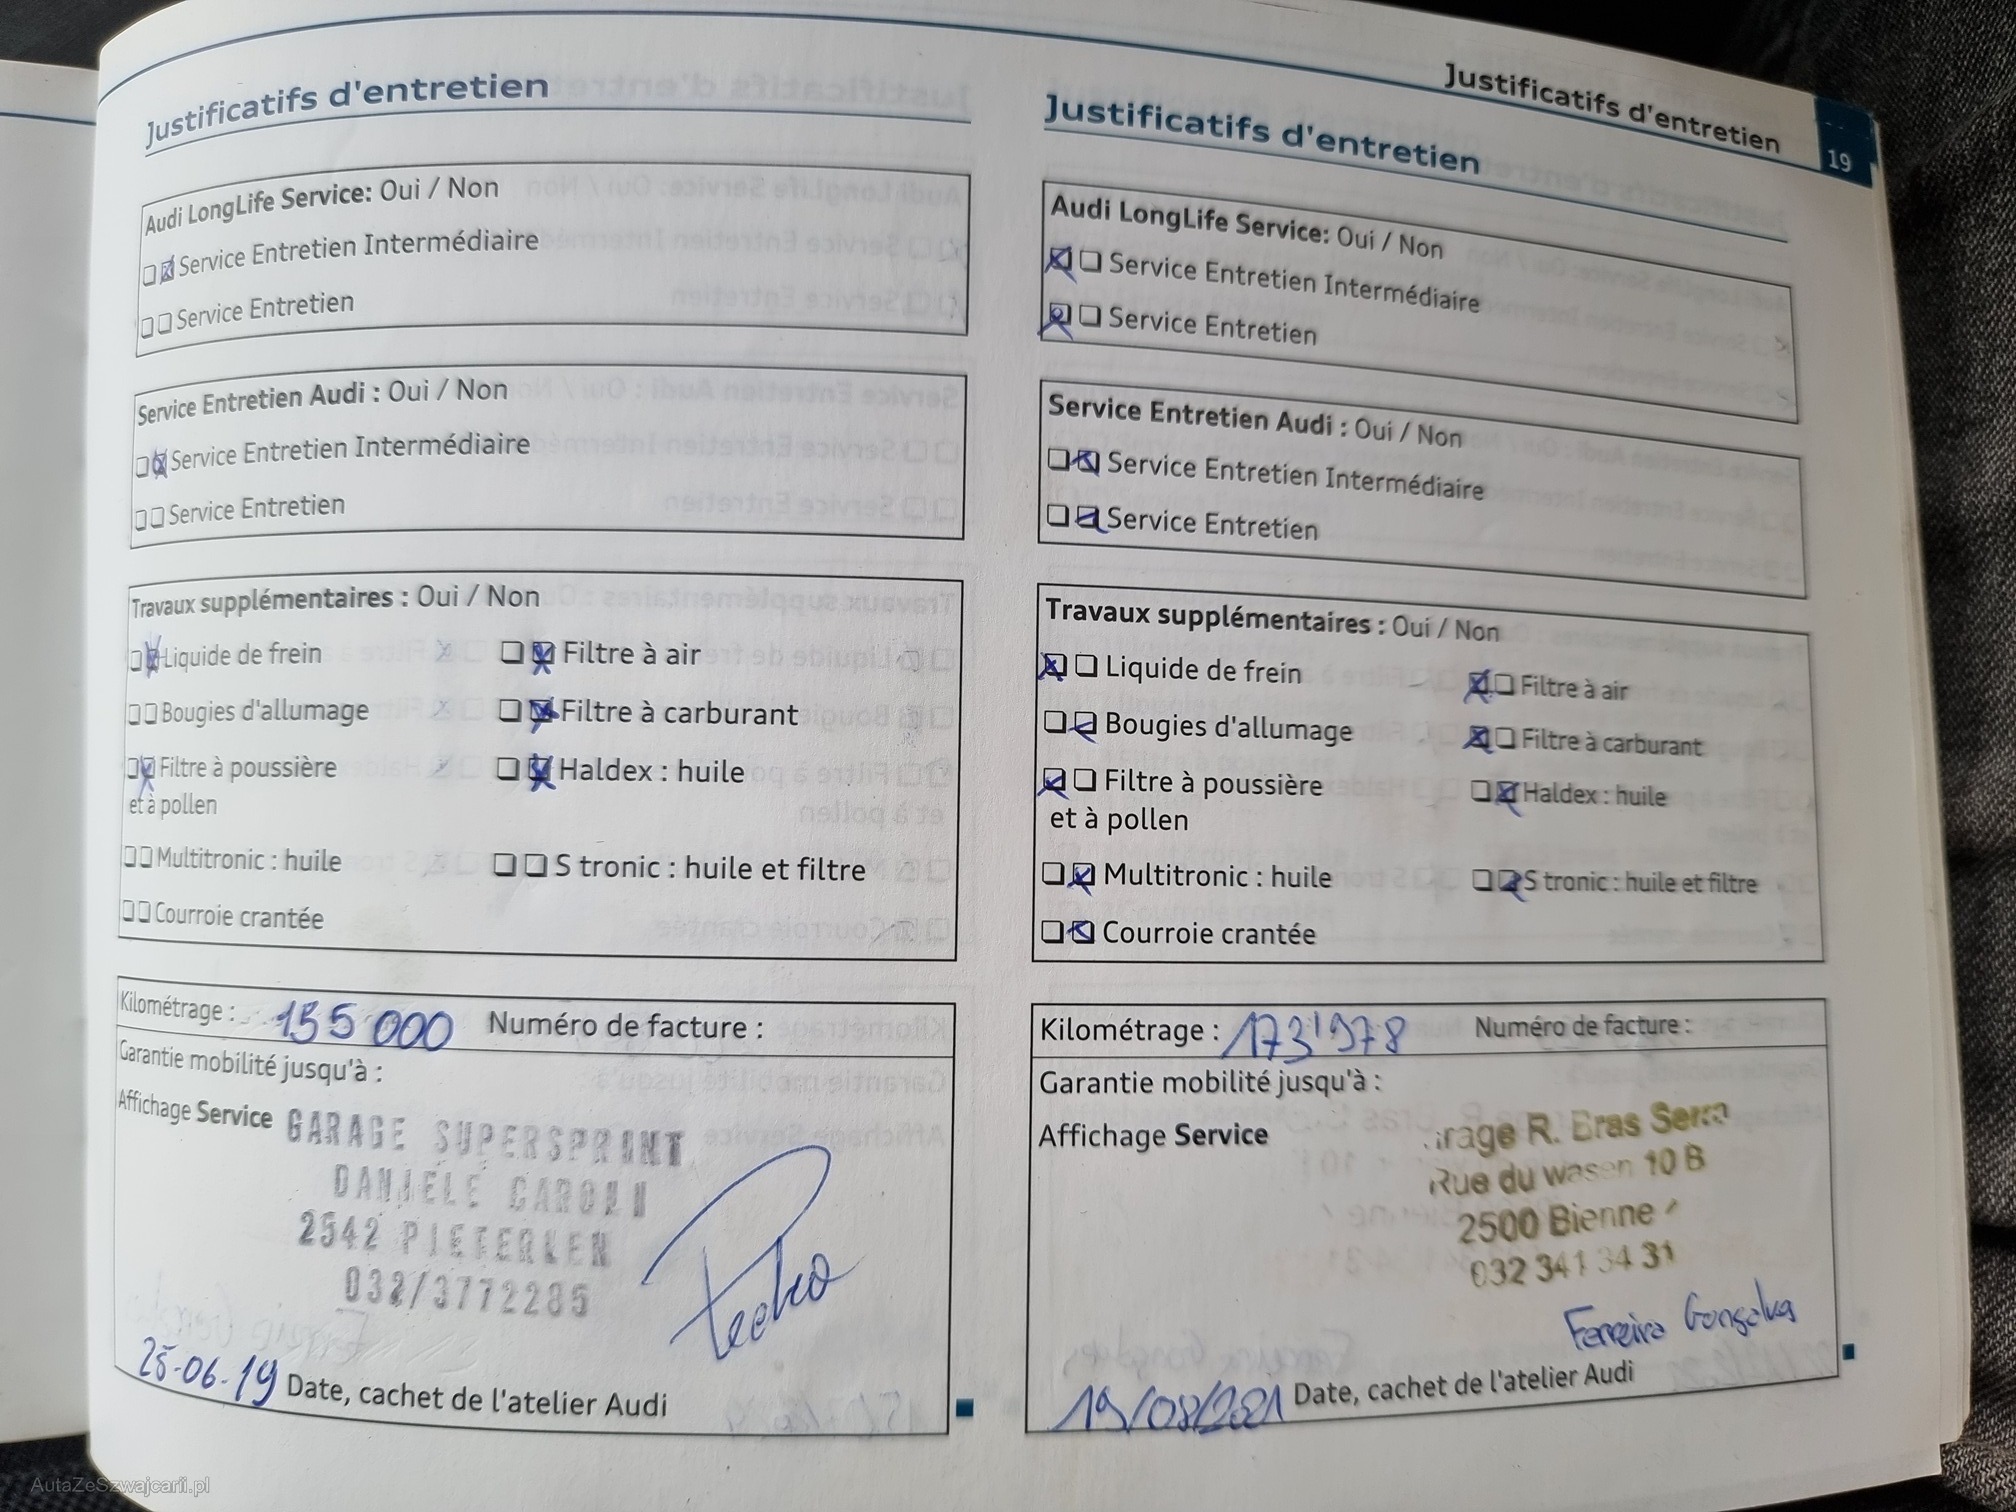 Justificatifs d'entretien
19
Justificatifs d'entretien
Audi LongLife Service: Oui / Non
Service Entretien Intermédiaire
Service Entretien
Service Entretien Audi : Oui / Non
Service Entretien Intermédiaire
Service Entretien
Travaux supplémentaires : Oui / Non
Liquide de frein
Filtre à air
Bougies d'allumage
Filtre à carburant
Filtre à poussière
et à pollen
Haldex : huile
Multitronic : huile
S tronic : huile et filtre
Courroie crantée
Kilométrage : 155 000 Numéro de facture :
Garantie mobilité jusqu'à :
Affichage Service
GARAGE SUPERSPRINT
DANIELE
2542 PIETERLEN
032/3772285
25-06-19 Date, cachet de l'atelier Audi
Justificatifs d'entretien
Audi LongLife Service: Oui / Non
Service Entretien Intermédiaire
Service Entretien
Service Entretien Audi : Oui / Non
Service Entretien Intermédiaire
Service Entretien
Travaux supplémentaires : Oui / Non
Liquide de frein
Filtre à air
Bougies d'allumage
Filtre à carburant
Filtre à poussière
et à pollen
Haldex : huile
Multitronic : huile
S tronic : huile et filtre
Courroie crantée
Kilométrage : 173'978 Numéro de facture :
Garantie mobilité jusqu'à :
Affichage Service
R. Bras
Rue du wasen 10 B
2500 Bienne
032 341 34 31
Ferreira Gonçalves
19/08/2021 Date, cachet de l'atelier Audi
AutaZeSzwajcarii.pl